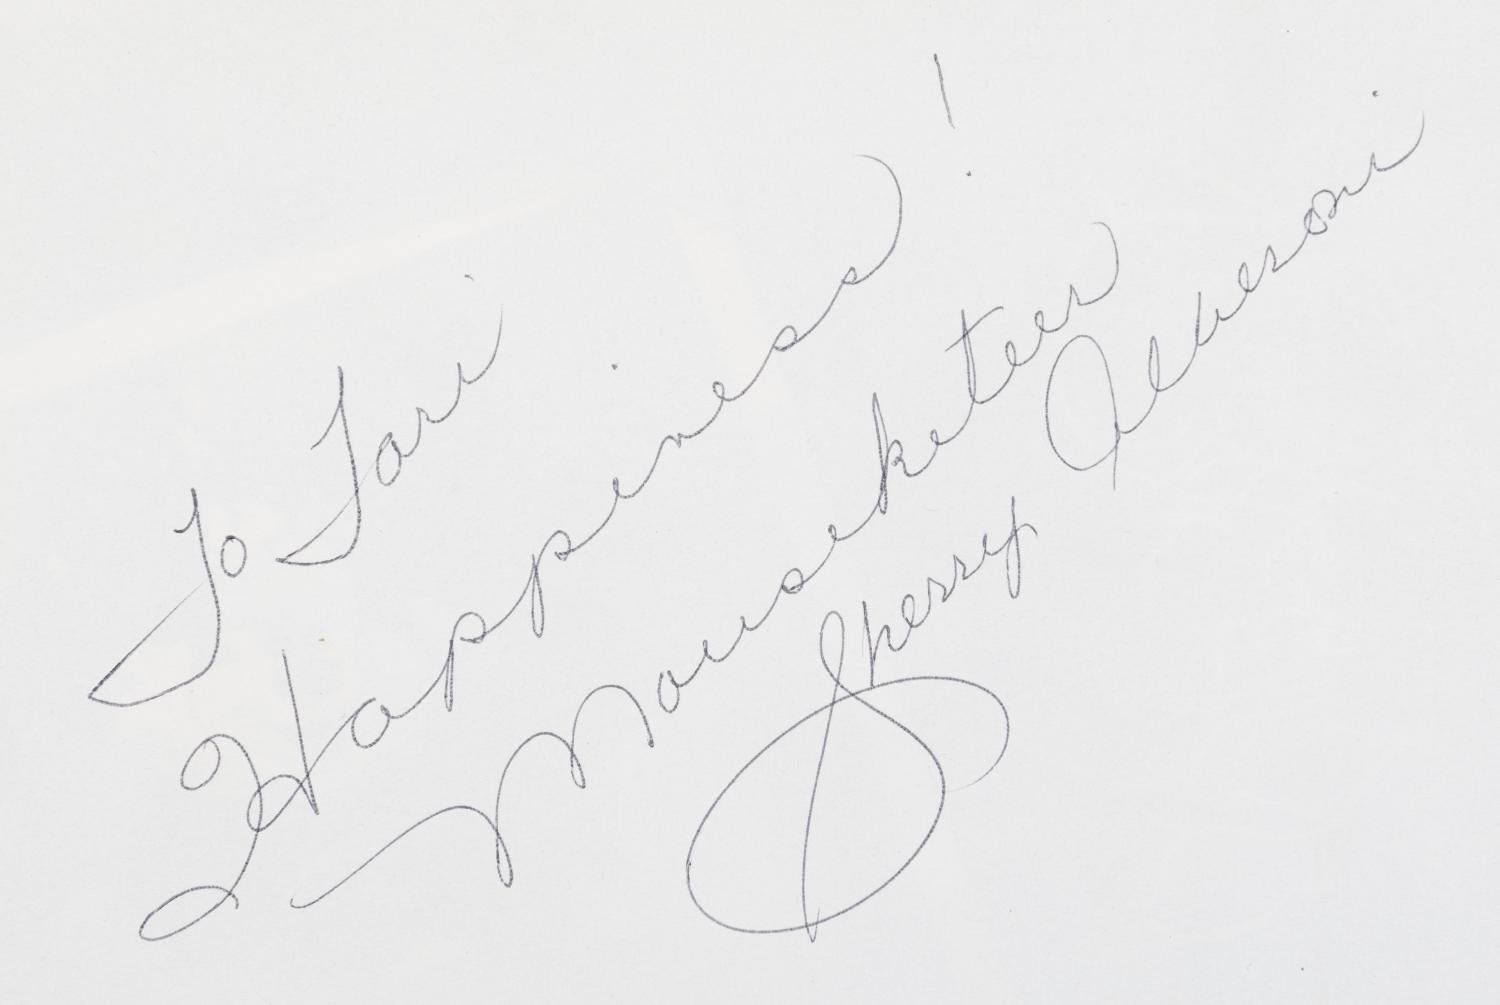 To Tari
Happiness!
Mouseketeer
Sherry Alberoni